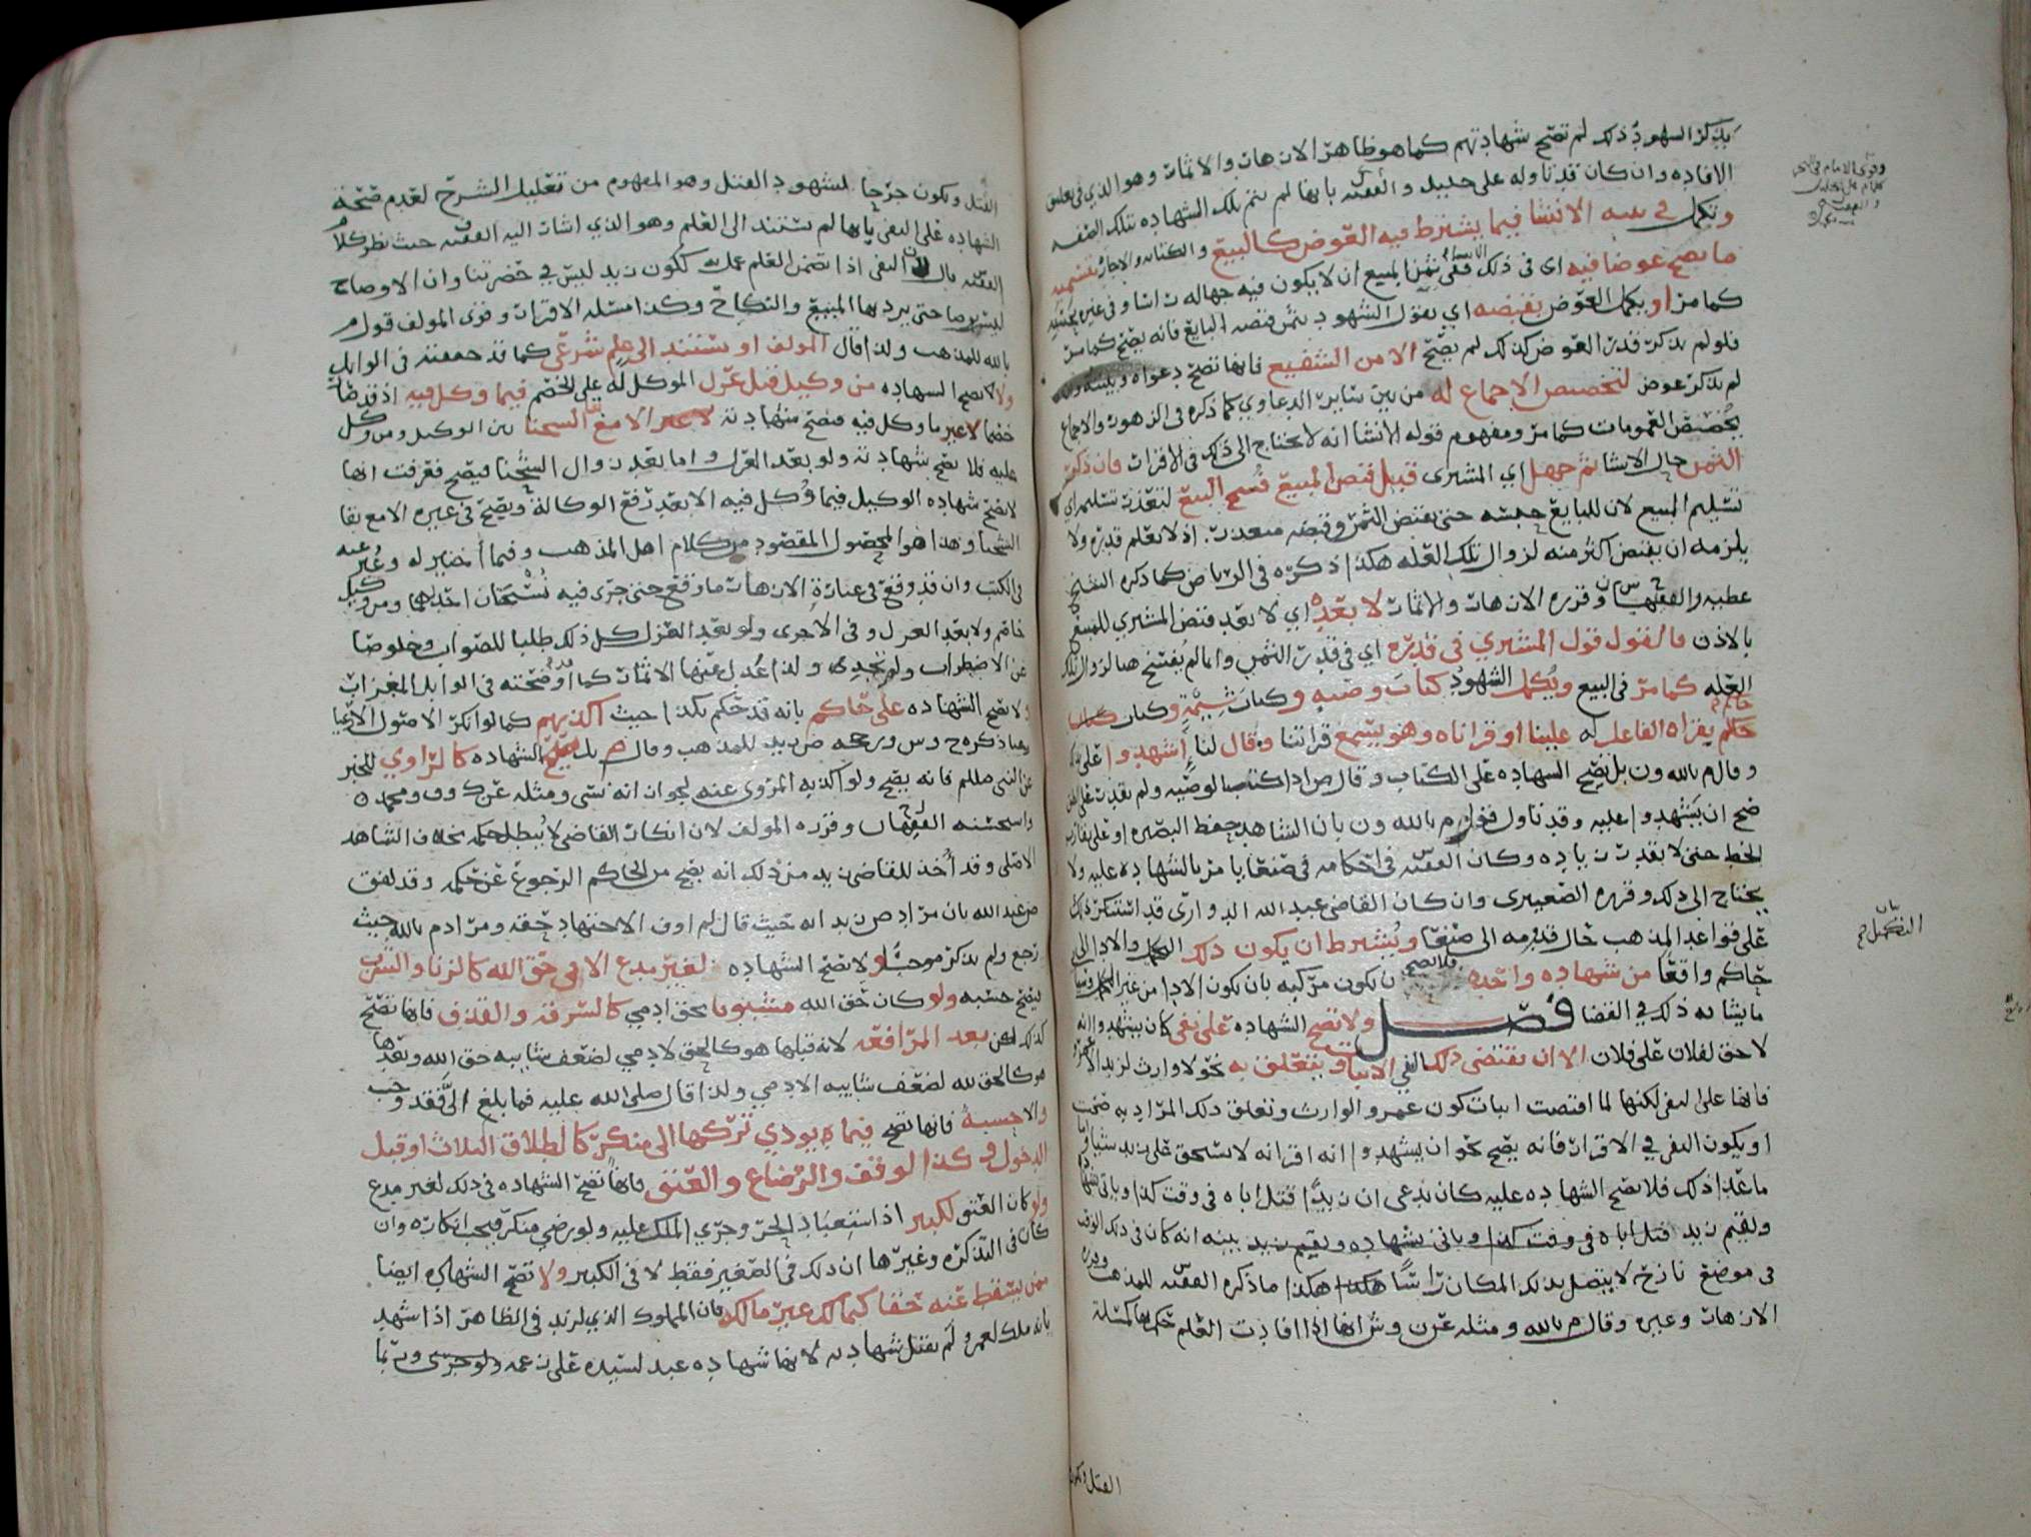 يذكر الشهود ذلك لم تصح شهادتهم كما هو ظاهر الازهار والاثمار وهو الذي في تعليق
الافاده وان كان قد تاوله على خليل والفقيه بانها لم تتم تلك الشهاده بتلك الصفه
وتكمل في الانشا فيما يشترط فيه العوض كالبيع والكتابه والاجاره بتسميه
ما يصح عوضا فيه اي في ذلك ففي ثمن المبيع ان لا يكون فيه جهاله راسا وفي غيره
كما مر او يكمل العوض بقبضه اي يقول الشهود بثمن قبضه البايع فانه يصح كما مر
فلو لم يذكر قدر العوض كذلك لم يصح الا من الشفيع فانها تصح دعواه وبينته وان
لم يذكر عوض لتخصيص الاجماع له من بين ساير الدعاوي كما ذكره في الزهور والاجماع
يخصص العمومات كما مر ومفهوم قوله الانشا انه لا يحتاج الى ذلك في الاقرار فان ذكر
الثمن حال الانشا ثم جهل اي المشتري قبل قبض المبيع فسخ البيع لتعذر تسليمه اي
تسليم المبيع لان للبايع حبسه حتى يقبض الثمن وقبضه متعذر اذ لا يعلم قدره ولا
يلزمه ان يقبض اكثر منه لزوال تلك العله هكذا ذكره في الرياض كما ذكره الشيخ
عطيه والفقيه س وقرره الازهار والاثمار لا بعده اي لا بعد قبض المشتري للمبيع
بالاذن فالقول قول المشتري في قدره اي في قدر الثمن وانما لم يفسخ هنا لزوال تلك
العله كما مر في البيع ويكمل الشهود كتاب وصيه وكتاب شيمة وكتاب
حاكم يقراه الفاعل له علينا او قراناه وهو يسمع قراتنا وقال لنا اشهدوا علي
وقال م بالله ون بل يصح الشهاده على الكتاب وقال مراد كتاب الوصيه ولم يقدر على
صح ان يشهدوا عليه وقد تاول قول م بالله ون بان الشاهد حفظ البصيره او على
الخط حتى لا يقدر زياده وكان الفقيه في احكامه في صنعا يامر بالشهاده عليه ولا
يحتاج الى ذلك وقرره الصعيتري وان كان القاضي عبد الله الدواري قد استنكر ذلك
على قواعد المذهب حال قدومه الى صنعا ويشترط ان يكون ذلك والادا الى
حاكم واقعا من شهاده واحده فلا تصح ان يكون مركبه بان يكون الادا من غير
ما يشابه ذلك في القضا فصل ولا تصح الشهاده على نفي كان يشهدوا انه
لا حق لفلان على فلان الا ان يقتضي ذلك النفي الاثبات ويتعلق به نحو لا وارث لزيد الا عمرو
فانها على النفي لكنها لما اقتضت اثبات كون عمرو الوارث وتعلق ذلك المراد به صحت
او يكون النفي في الاقرار فانه يصح نحو ان يشهدوا انه اقر انه لا يستحق على زيد شيئا واما
ما عدا ذلك فلا تصح الشهاده عليه كان يدعي ان زيدا قتل اباه في وقت كذا وياتي
ويقيم زيد قتل اباه في وقت كذا وياتي بشهاده ويقيم زيد بينه انه كان في ذلك الوقت
في موضع نازح لا يتصل بذلك المكان راسا هكذا هكذا ما ذكره الفقيه للمذهب
الازهار وغيره وقال م بالله ومثله عن ن وش انها اذا افادت العلم حكم بها كمسئلة
وقوى الامام في البحر
بيان
التكميل
القتل ويكون
القتل ويكون جرحا لشهود القتل وهو المفهوم من تعليل الشرح لعدم صحة
الشهاده على النفي بانها لم تستند الى العلم وهو الذي اشار اليه الفقيه حيث نظر كلام
الفقيه بان النفي اذا تضمن العلم عمل به ككون زيد ليس في حضرتنا وان الاوصاح
ليس برصا حتى يرد بها المبيع والنكاح وكذا مسئله الاقرار وقوى المولف قول م
بالله للمذهب ولذا قال المولف او يستند الى علم شرعي كما قد حققته في الوابل
ولا تصح الشهاده من وكيل قبل عزل الموكل له على الخصم فيما وكل فيه اذ قد صار
خصما لا غير ما وكل فيه فتصح شهادته لا غير الا مع بقا الشحنا بين الوكيل ومن وكل
عليه فلا تصح شهادته ولو بعد العزل واما بعد زوال الشحنا فيصح فعرفت انها
لا تصح شهاده الوكيل فيما وكل فيه الا بعد رفع الوكالة ويصح في غيره الا مع بقا
الشحنا وهذا هو المحصول المقصود من كلام اهل المذهب وفيما اختير له وعبر عنه
في الكتب وان قد وقع في عبارة الازهار ما وقع حتى جرى فيه نسختان احديهما ومن وكيل
خاصم ولا بعد العزل وفي الاخرى ولو بعد العزل كل ذلك طلبا للصواب وخلوصا
عن الاضطراب ولم تجدي ولذا عدل عنها الاثمار كما اوضحته في الوابل المغزار
ولا تصح الشهاده على حاكم بانه قد حكم بكذا حيث اكذبهم كما لو انكر الاصول الارعيا
هذا ذكره ح وس ورجحه ض زيد للمذهب وقال م بل تصح الشهاده كالراوي للخبر
عن النبي صللم فانه يصح ولو اكذبه المروي عنه لجواز انه نسى ومثله عن ك وف ومحمد
واستحسنه الفقيهان وقرره المولف لان انكار القاضي لا يبطل حكمه بخلاف الشاهد
الاصلي وقد اُخذ للقاضي زيد من ذلك انه يصح من الحاكم الرجوع عن حكمه وقد لفق
ض عبد الله بان مراد ض زيد انه حيث قال لم اوف الاجتهاد حقه ومراد م بالله حيث
رجع ولم يذكر موجبا ولا تصح الشهاده لغير مدع الا في حق الله كالزنا والشرب
فيصح حسبه ولو كان حق الله مشوبا بحق ادمي كالسرقه والقذف فانها تصح
كذلك لكن بعد المرافعه لانه قبلها هو كالحق لادمي لضعف شايبه حق الله وبعدها
هو كالحق لله لضعف شايبه الادمي ولذا قال صلى الله عليه فما بلغ الي فقد وجب
والا حسبه فانها تصح فيما يودي تركها الى منكر كالطلاق الثلاث او قبل
الدخول وكذا لوقف والرضاع والعتق فانها تصح الشهاده في ذلك لغير مدع
ولو كان العتق لكبير اذ استعباد الحر وجري الملك عليه ولو رضي منكر فيجب انكاره وان
كان في التذكره وغيرها ان ذلك في الصغير فقط لا في الكبير ولا تصح الشهاده ايضا
ممن يسقط عنه حقا كمالك غير مالك فان المملوك الذي لزيد في الظاهر اذا شهد
بانه ملك لعمرو لم تقبل شهادته لانها شهاده عبد لسيده على زعمه ولو جرى وربما